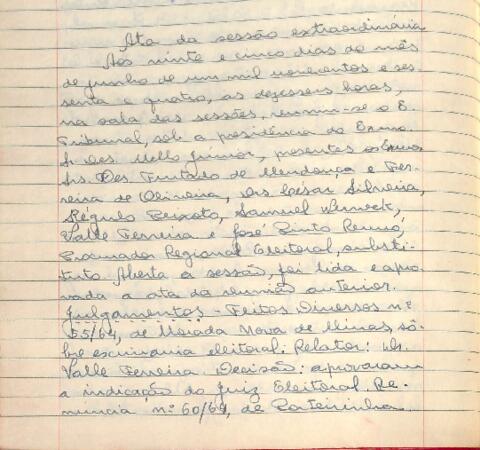 Ata da sessão extraordinária
Aos vinte e cinco dias do mês
de junho de um mil novecentos e ses
senta e quatro, as dezesseis horas,
na sala das sessões, reuniu-se o E.
Tribunal, sob a presidência do Exmo.
Sr. Des. Mello Júnior, presentes os Exmos
Srs. Des. Furtado de Mendonça e Fer-
reira de Oliveira, Drs César Silveira,
Régulo Peixoto, Samuel Werneck,
Valle Ferreira e José Pinto Renó,
Procurador Regional Eleitoral, substi-
tuto. Aberta a sessão, foi lida e apro-
vada a ata da reunião anterior.
Julgamentos - Feitos Diversos nº
55/64, de Morada Nova de Minas, sô-
bre escrivania eleitoral: Relator: Dr.
Valle Ferreira. Decisão: aprovaram
a indicação do Juiz Eleitoral. Re-
nuncia nº 60/64, de Porteirinha.